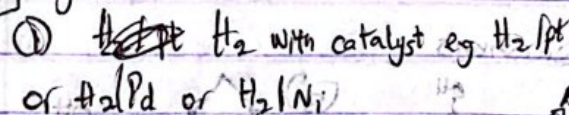 ① H₂ with catalyst eg H₂/pt
or H₂/Pd or H₂/Ni